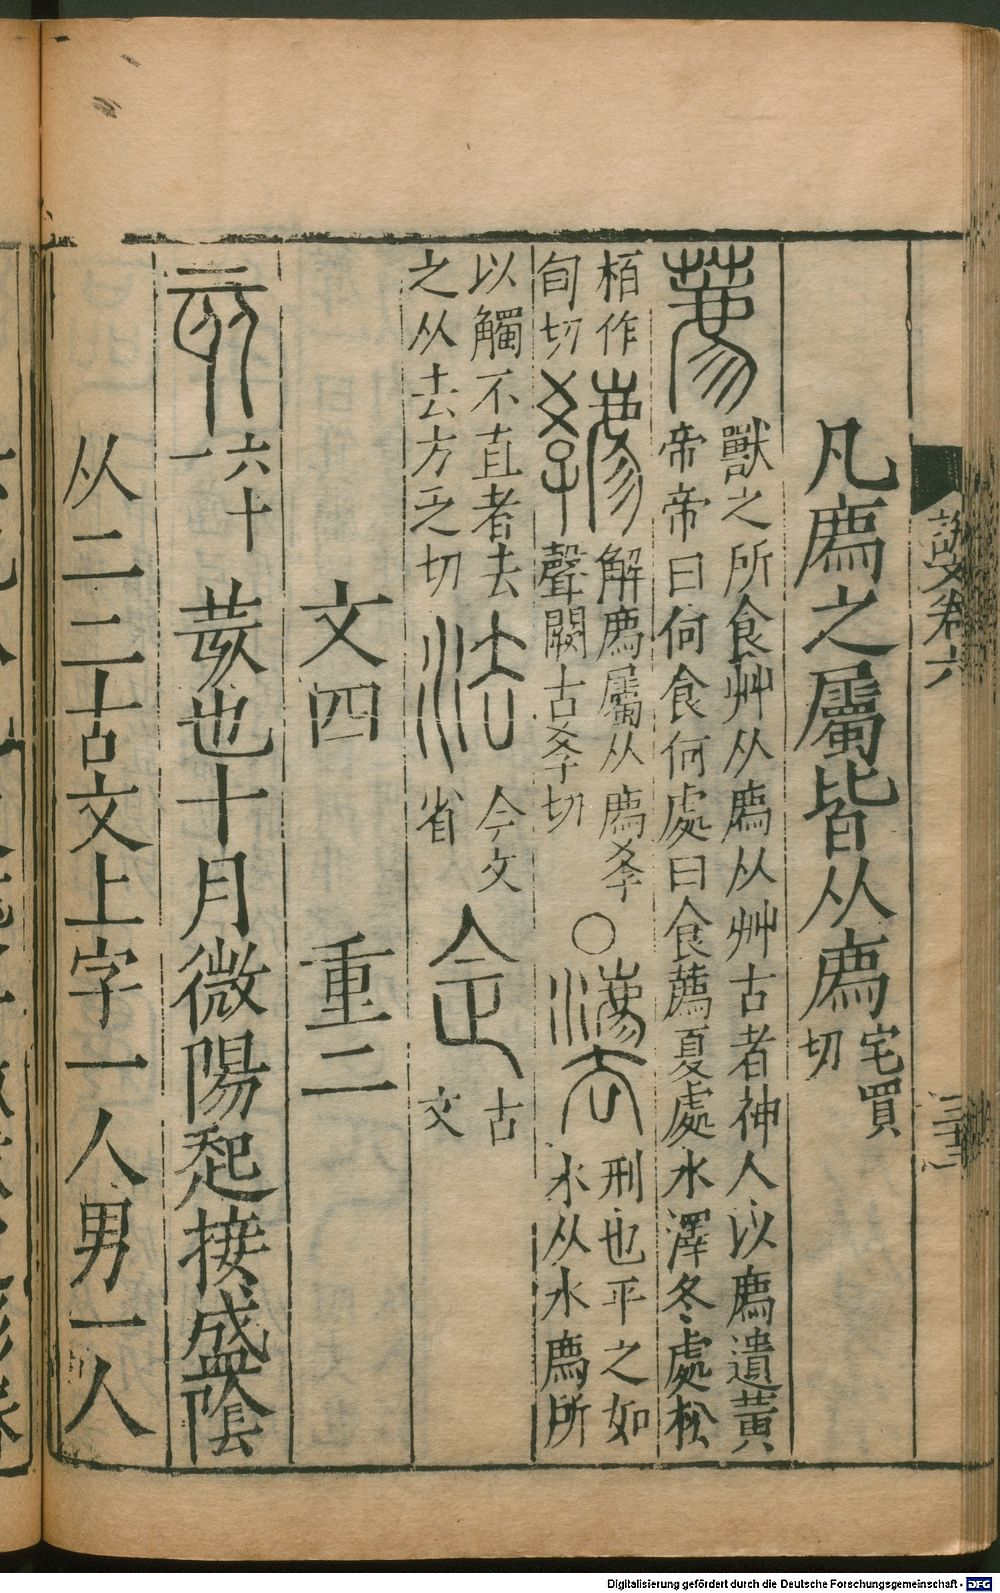 說文卷六
凡廌之屬皆从廌宅買切
薦獸之所食艸从廌从艸古者神人以廌遺黃
帝帝曰何食何處曰食薦夏處水澤冬處松
栢作
旬切
解廌屬从廌孝
聲闕古孝切
○灋刑也平之如
水从水廌所
以觸不直者去
之从去方乏切
法今文
省
古
文
文四　重二
亥六十
一
荄也十月微陽起接盛陰
从二二古文上字一人男一人
Digitalisierung gefördert durch die Deutsche Forschungsgemeinschaft - DFG